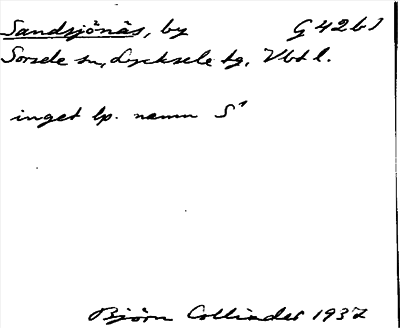 Sandsjönäs, by G 42 b J
Sorsele sn, Lycksele tg, Vbtl.
inget lp. namn S¹
Björn Collinder 1937